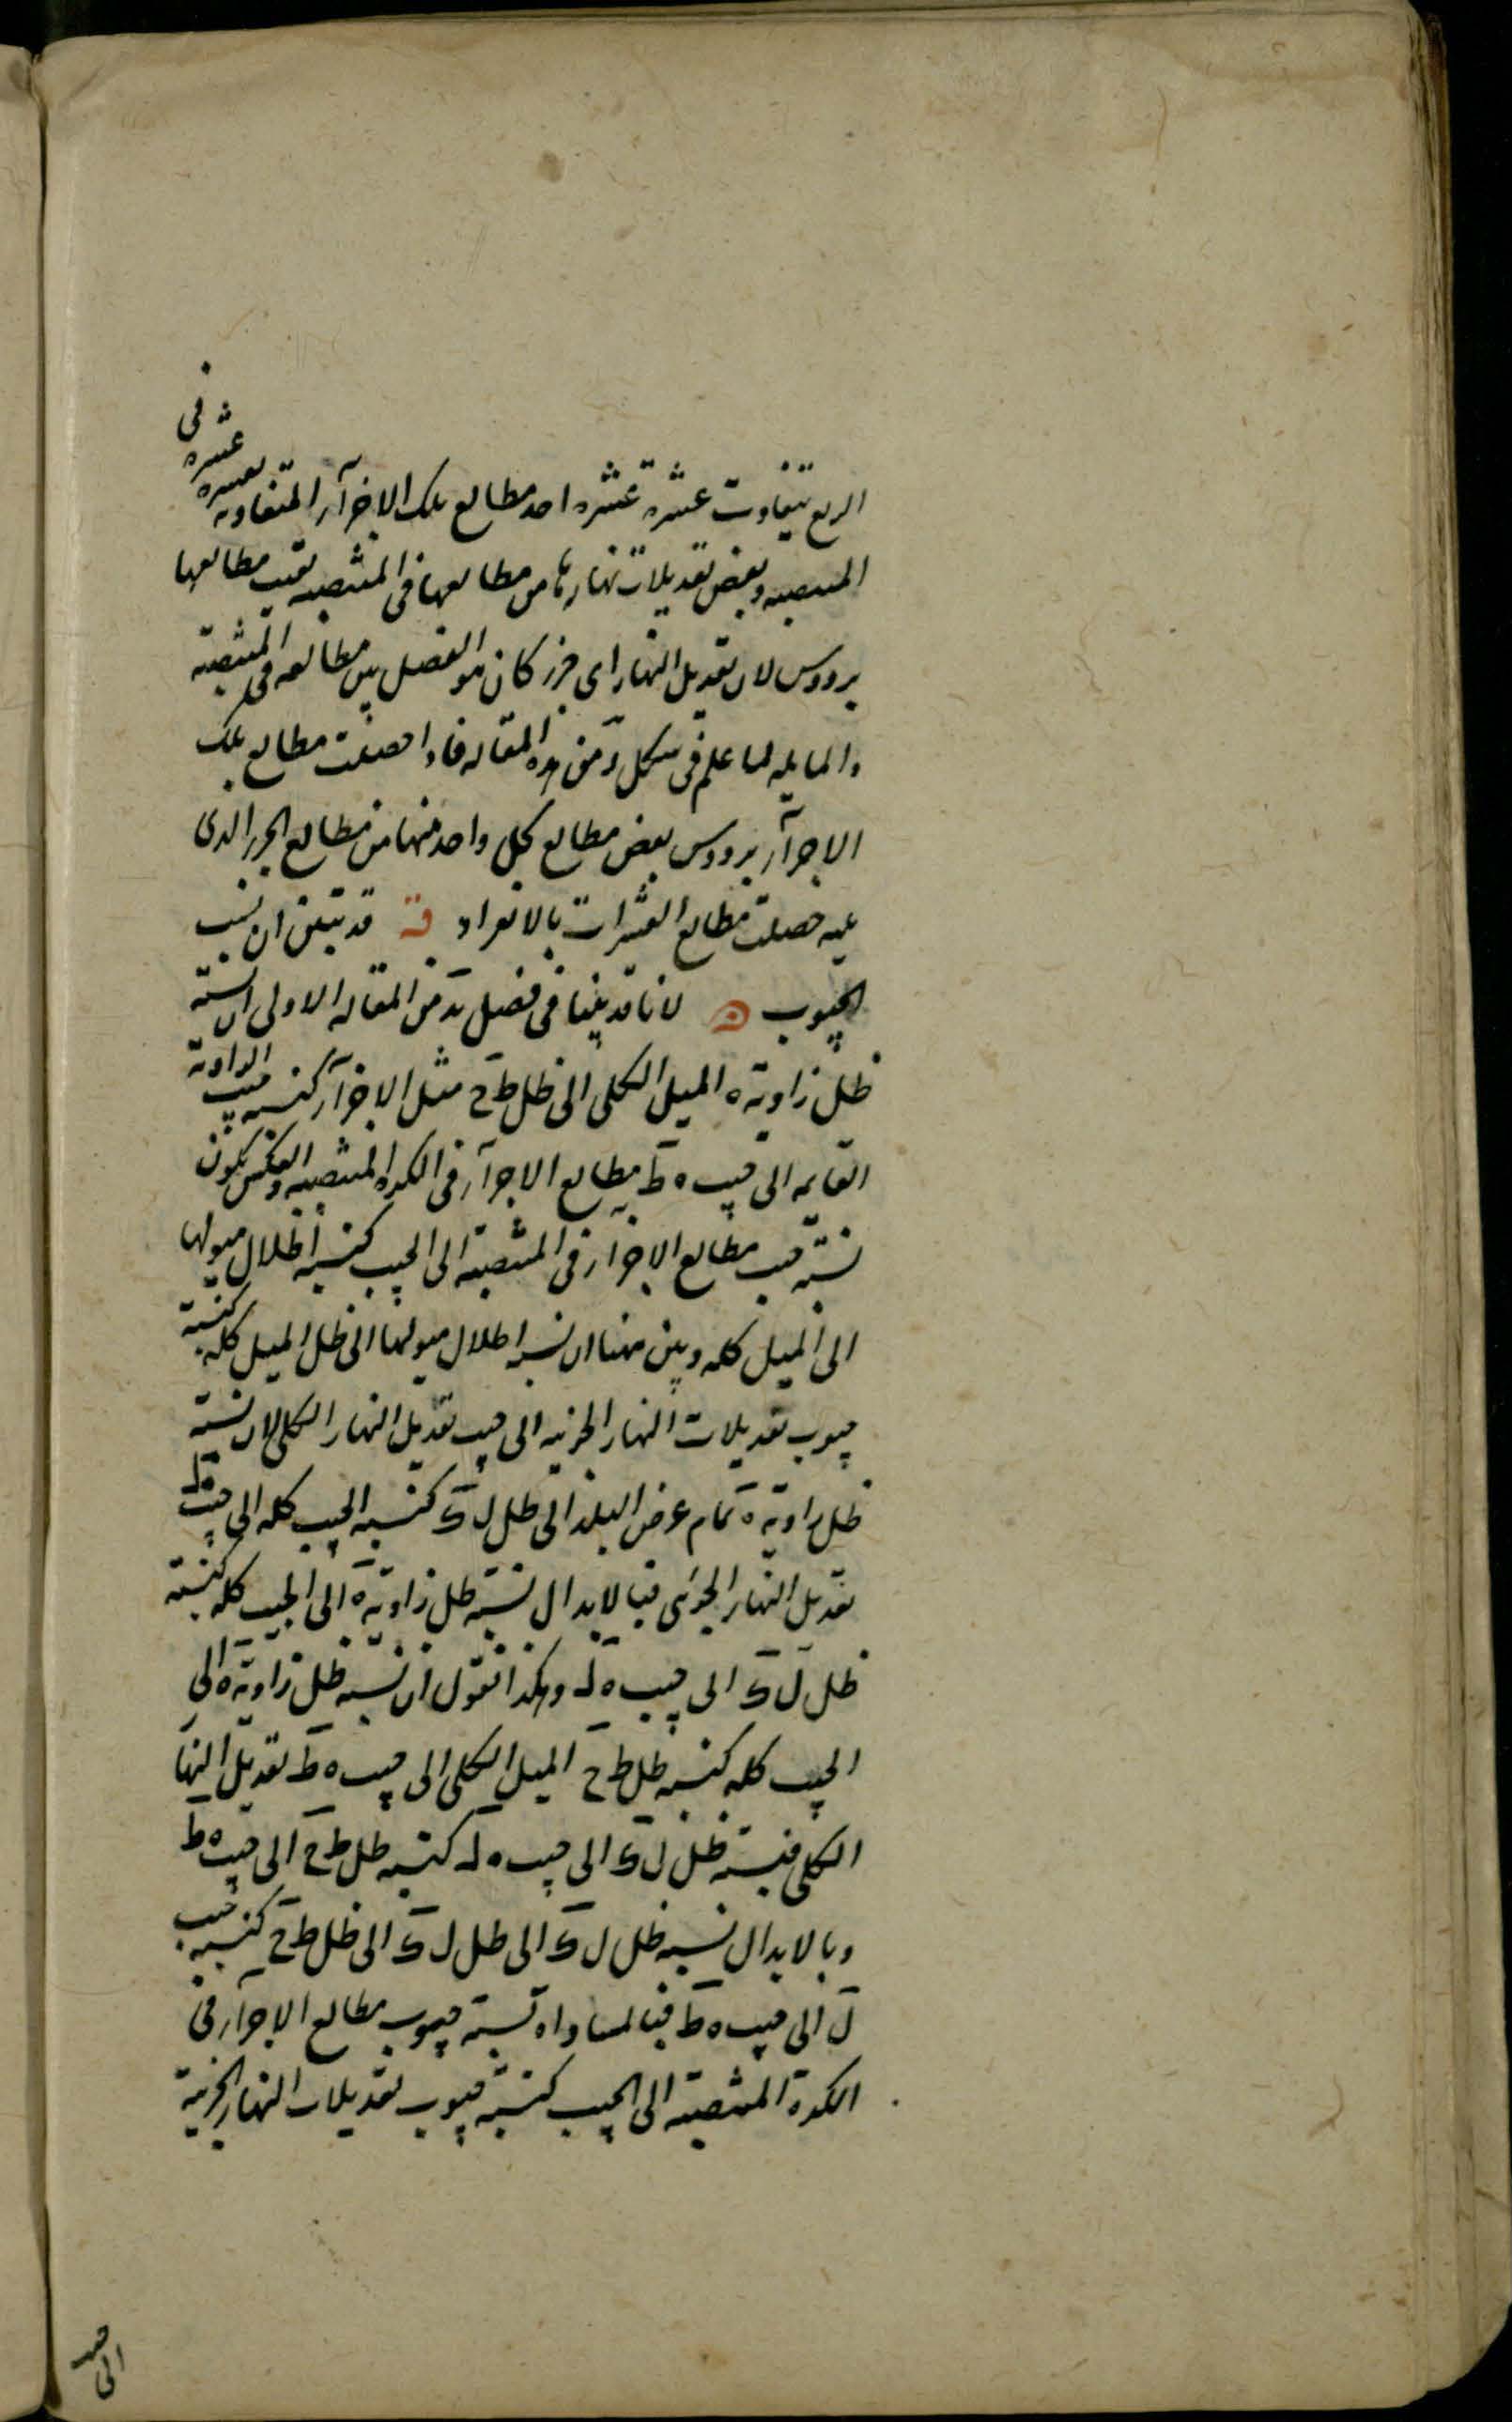 الربع بتفاوت عشرة عشرة احد مطالع تلك الاجزآء المتفاوتة بعشرة عشرة فى
المنتصبه ونقص تعديلات نهارها من مطالعها فى المنتصبه بقيت مطالعها
برودس لان تعديل النهار اى جزء كان هو الفضل بين مطالعه فى المنتصبة
والمايله لما علم فى شكل و من هذه المقاله فاذا حصلت مطالع تلك
الاجزآء برودس نقص مطالع كل واحد منها من مطالع الجزء الذى
يليه حصلت مطالع العشرات بالانفراد قد تبين ان نسب
الجيوب لانا قد بينا فى فصل يد من المقاله الاولى ان نسبة
ظل زاوية ه الميل الكلى الى ظل ط ح ميل الاجزآء كنسبه جيب الزاوية
القايمه الى جيب ه ط مطالع الاجزآء فى الكره المنتصبه وبالعكس يكون
نسبة جيب مطالع الاجزآء فى المنتصبة الى الجيب كنسبه اظلال ميولها
الى الميل كله وبين هنا ان نسبه اظلال ميولها الى ظل الميل كله كنسبة
جيوب تعديلات النهار الجزئيه الى جيب تعديل النهار الكلى لان نسبة
ظل زاوية ه تمام عرض البلد الى ظل ل ك كنسبه الجيب كله الى جيب ه ل
تعديل النهار الجزئى فبالابدال نسبة ظل زاوية ه الى الجيب كله كنسبة
ظل ل ك الى جيب ه ل وهكذا نقول ان نسبه ظل زاوية ه الى
الجيب كله كنسبه ظل ط ح الميل الكلى الى جيب ه ط تعديل النها
الكلى فنسبة ظل ل ك الى جيب ه ل كنسبه ظل ط ح الى جيب ه ط
وبالابدال نسبه ظل ل ك الى ظل ل ك الى ظل ط ح كنسبه جيب
ل الى جيب ه ط فبالمساواه نسبة جيوب مطالع الاجزآء فى
الكرة المنتصبة الى الجيب كنسبة جيوب تعديلات النهار الجزئية
الى